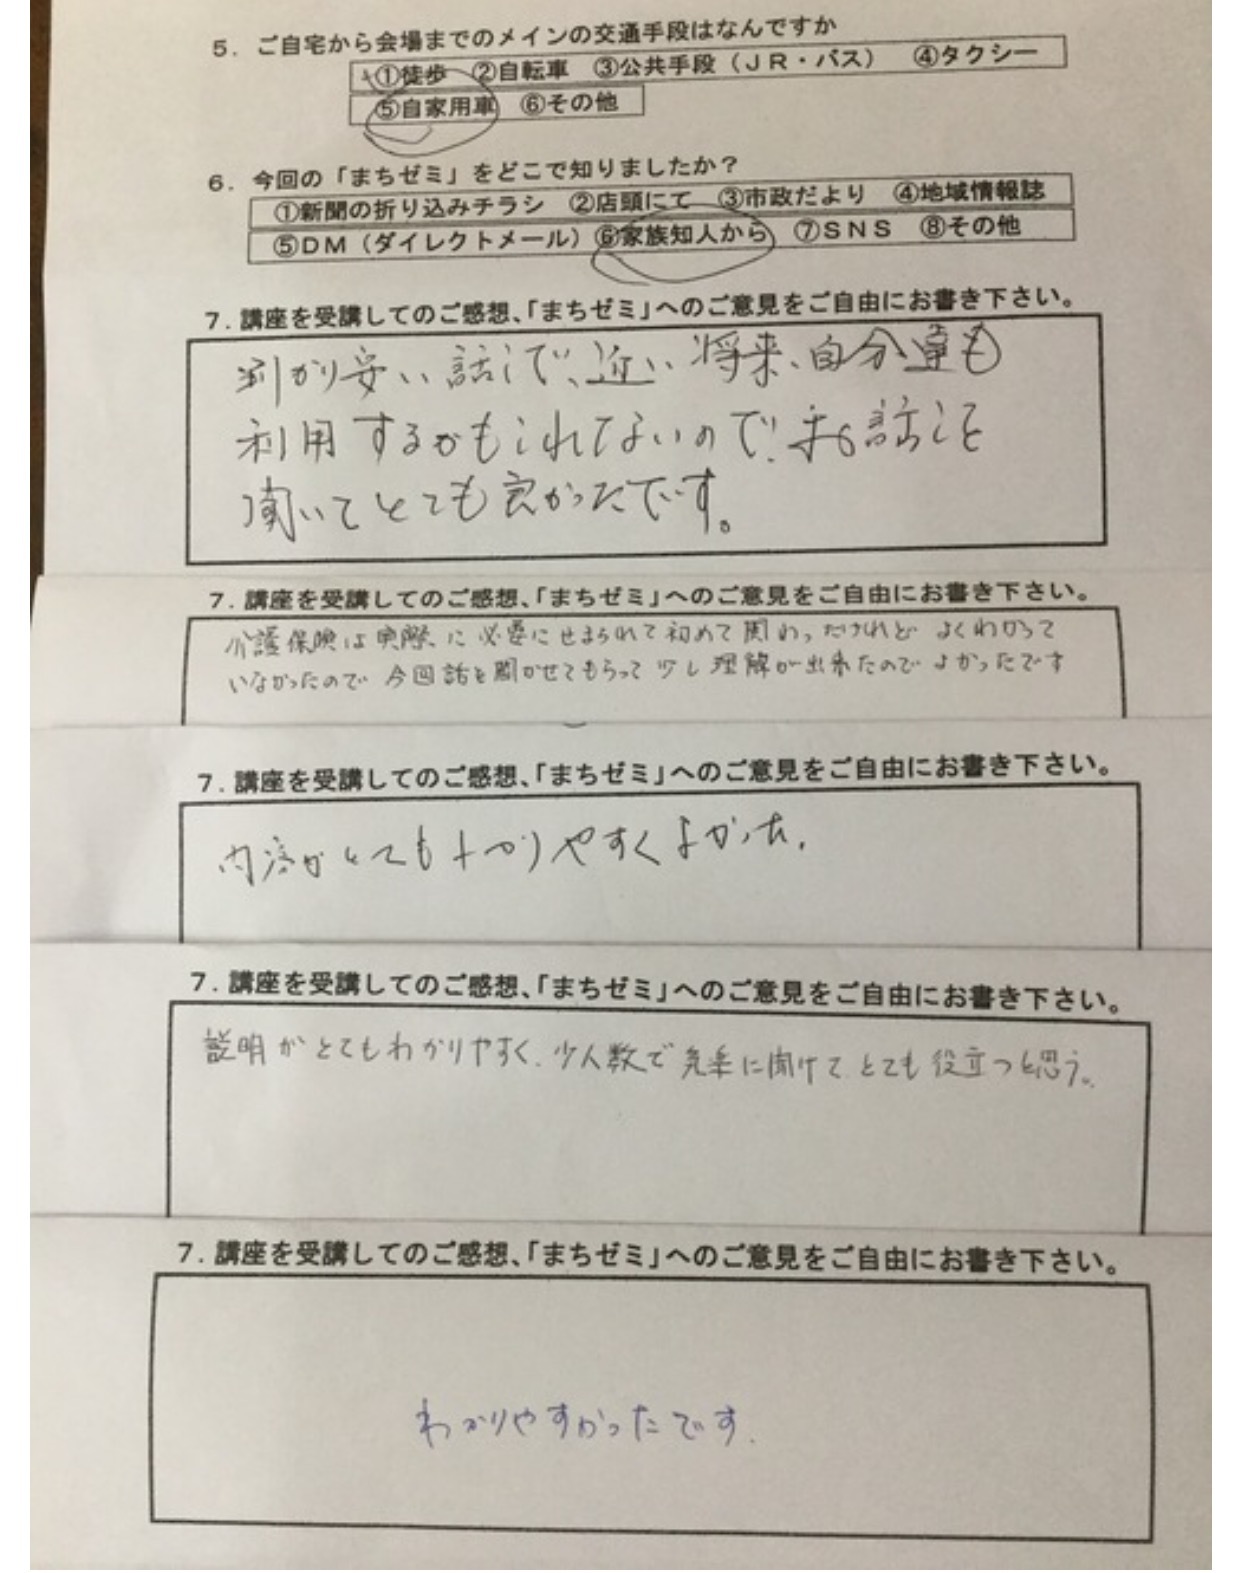 5．ご自宅から会場までのメインの交通手段はなんですか
①徒歩　②自転車　③公共手段（ＪＲ・バス）　④タクシー
⑤自家用車　⑥その他
6．今回の「まちゼミ」をどこで知りましたか？
①新聞の折り込みチラシ　②店頭にて　③市政だより　④地域情報誌
⑤ＤＭ（ダイレクトメール）⑥家族知人から　⑦ＳＮＳ　⑧その他
7．講座を受講してのご感想、「まちゼミ」へのご意見をご自由にお書き下さい。
判かり安い話しで、近い将来、自分達も
利用するかもしれてないので、お話しを
聞いてとても良かったです。
7．講座を受講してのご感想、「まちゼミ」へのご意見をご自由にお書き下さい。
介護保険は実際に必要にせまられて初めて関わったけれど よくわかって
いなかったので 今回話を聞かせてもらって 少し理解が出来たので よかったです
7．講座を受講してのご感想、「まちゼミ」へのご意見をご自由にお書き下さい。
内容がとてもわかりやすくよかった。
7．講座を受講してのご感想、「まちゼミ」へのご意見をご自由にお書き下さい。
説明がとてもわかりやすく、少人数で気楽に聞けて とても役立つと思う。
7．講座を受講してのご感想、「まちゼミ」へのご意見をご自由にお書き下さい。
わかりやすかったです.